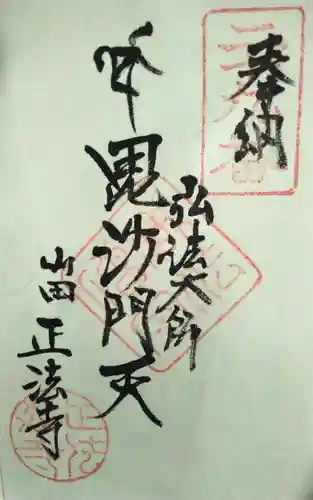 奉納
弘法大師
毘沙門天
山田
正法寺